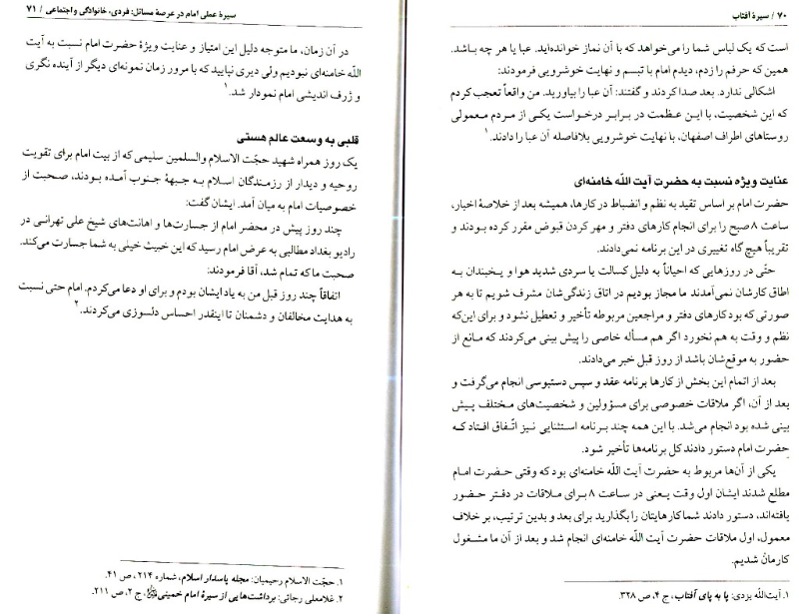 ۷۰ / سیرهٔ آفتاب
است که یک لباس شما را می‌خواهد که با آن نماز خوانده‌اید. عبا یا هر چه باشد.
همین که حرفم را زدم، دیدم امام با تبسم و نهایت خوشرویی فرمودند:
اشکالی ندارد. بعد صدا کردند و گفتند: آن عبا را بیاورید. من واقعاً تعجب کردم
که این شخصیت، با این عظمت در برابر درخواست یکی از مردم معمولی
روستاهای اطراف اصفهان، با نهایت خوشرویی بلافاصله آن عبا را دادند.۱
عنایت ویژه نسبت به حضرت آیت اللّه خامنه‌ای
حضرت امام بر اساس تقید به نظم و انضباط در کارها، همیشه بعد از خلاصهٔ اخبار،
ساعت ۸ صبح را برای انجام کارهای دفتر و مهر کردن قبوض مقرر کرده بودند و
تقریباً هیچ گاه تغییری در این برنامه نمی‌دادند.
حتّی در روزهایی که احیاناً به دلیل کسالت یا سردی شدید هوا و یخبندان به
اطاق کارشان نمی‌آمدند ما مجاز بودیم در اتاق زندگی‌شان مشرف شویم تا به هر
صورتی که بود کارهای دفتر و مراجعین مربوطه تأخیر و تعطیل نشود و برای این‌که
نظم و وقت به هم نخورد اگر هم مسأله خاصی را پیش بینی می‌کردند که مانع از
حضور به موقع‌شان باشد از روز قبل خبر می‌دادند.
بعد از اتمام این بخش از کارها برنامه عقد و سپس دستبوسی انجام می‌گرفت و
بعد از آن، اگر ملاقات خصوصی برای مسؤولین و شخصیت‌های مختلف پیش
بینی شده بود انجام می‌شد. با این همه چند برنامه استثنایی نیز اتّفاق افتاد که
حضرت امام دستور دادند کل برنامه‌ها تأخیر شود.
یکی از آن‌ها مربوط به حضرت آیت اللّه خامنه‌ای بود که وقتی حضرت امام
مطلع شدند ایشان اول وقت یعنی در ساعت ۸ برای ملاقات در دفتر حضور
یافته‌اند، دستور دادند شما کارهایتان را بگذارید برای بعد و بدین ترتیب، بر خلاف
معمول، اول ملاقات حضرت آیت اللّه خامنه‌ای انجام شد و بعد از آن ما مشغول
کارمان شدیم.
۱. آیت‌اللّه یزدی: پا به پای آفتاب، ج ۴، ص ۳۲۸.
سیرهٔ عملی امام در عرصهٔ مسائل: فردی، خانوادگی و اجتماعی / ۷۱
در آن زمان، ما متوجه دلیل این امتیاز و عنایت ویژهٔ حضرت امام نسبت به آیت
اللّه خامنه‌ای نبودیم ولی دیری نپایید که با مرور زمان نمونه‌ای دیگر از آینده نگری
و ژرف اندیشی امام نمودار شد.۱
قلبی به وسعت عالم هستی
یک روز همراه شهید حجّت الاسلام والسلمین سلیمی که از بیت امام برای تقویت
روحیه و دیدار از رزمندگان اسلام به جبههٔ جنوب آمده بودند، صحبت از
خصوصیات امام به میان آمد. ایشان گفت:
چند روز پیش در محضر امام از جسارت‌ها و اهانت‌های شیخ علی تهرانی در
رادیو بغداد مطالبی به عرض امام رسید که این خبیث خیلی به شما جسارت می‌کند.
صحبت ما که تمام شد، آقا فرمودند:
اتفاقاً چند روز قبل من به یاد ایشان بودم و برای او دعا می‌کردم. امام حتی نسبت
به هدایت مخالفان و دشمنان تا اینقدر احساس دلسوزی می‌کردند.۲
۱. حجّت الاسلام رحیمیان: مجله پاسدار اسلام، شماره ۲۱۴، ص ۴۱.
۲. غلامعلی رجائی: برداشت‌هایی از سیرهٔ امام خمینی، ج ۲، ص ۲۱۱.